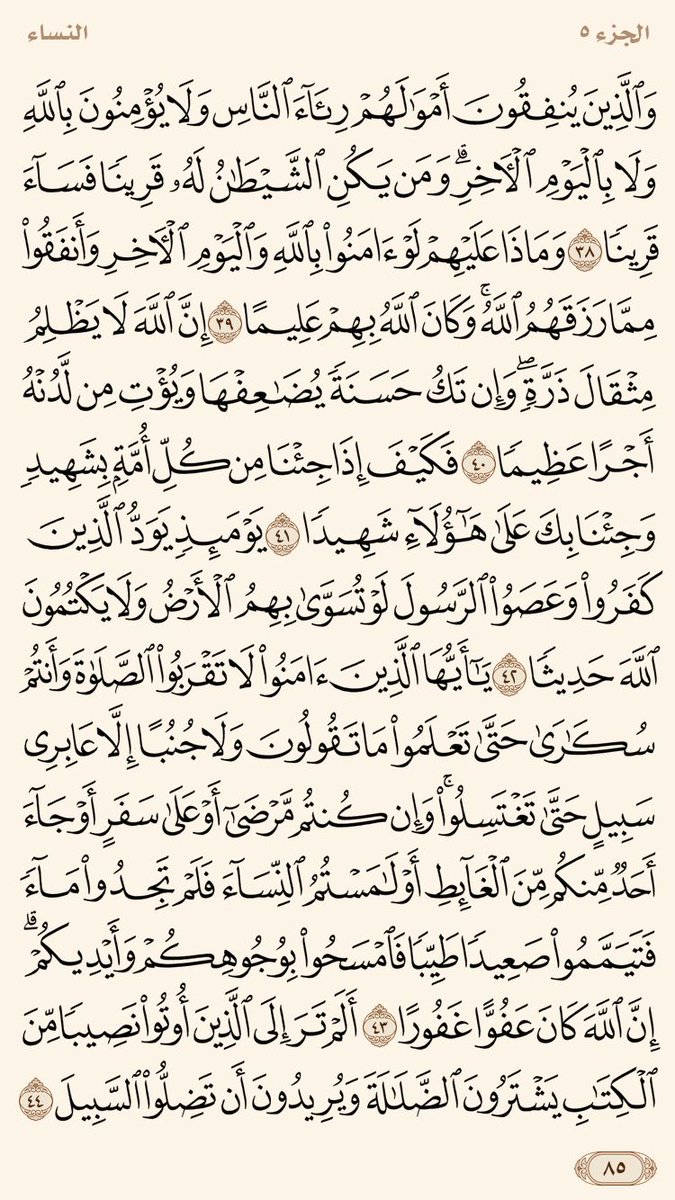 الجزء ٥
النساء
وَٱلَّذِينَ يُنفِقُونَ أَمۡوَٰلَهُمۡ رِئَآءَ ٱلنَّاسِ وَلَا يُؤۡمِنُونَ بِٱللَّهِ
وَلَا بِٱلۡيَوۡمِ ٱلۡأٓخِرِۗ وَمَن يَكُنِ ٱلشَّيۡطَٰنُ لَهُۥ قَرِينٗا فَسَآءَ
قَرِينٗا ٣٨ وَمَاذَا عَلَيۡهِمۡ لَوۡ ءَامَنُواْ بِٱللَّهِ وَٱلۡيَوۡمِ ٱلۡأٓخِرِ وَأَنفَقُواْ
مِمَّا رَزَقَهُمُ ٱللَّهُۚ وَكَانَ ٱللَّهُ بِهِمۡ عَلِيمًا ٣٩ إِنَّ ٱللَّهَ لَا يَظۡلِمُ
مِثۡقَالَ ذَرَّةٖۖ وَإِن تَكُ حَسَنَةٗ يُضَٰعِفۡهَا وَيُؤۡتِ مِن لَّدُنۡهُ
أَجۡرًا عَظِيمٗا ٤٠ فَكَيۡفَ إِذَا جِئۡنَا مِن كُلِّ أُمَّةِۭ بِشَهِيدٖ
وَجِئۡنَا بِكَ عَلَىٰ هَٰٓؤُلَآءِ شَهِيدٗا ٤١ يَوۡمَئِذٖ يَوَدُّ ٱلَّذِينَ
كَفَرُواْ وَعَصَوُاْ ٱلرَّسُولَ لَوۡ تُسَوَّىٰ بِهِمُ ٱلۡأَرۡضُ وَلَا يَكۡتُمُونَ
ٱللَّهَ حَدِيثٗا ٤٢ يَٰٓأَيُّهَا ٱلَّذِينَ ءَامَنُواْ لَا تَقۡرَبُواْ ٱلصَّلَوٰةَ وَأَنتُمۡ
سُكَٰرَىٰ حَتَّىٰ تَعۡلَمُواْ مَا تَقُولُونَ وَلَا جُنُبًا إِلَّا عَابِرِي
سَبِيلٍ حَتَّىٰ تَغۡتَسِلُواْۚ وَإِن كُنتُم مَّرۡضَىٰٓ أَوۡ عَلَىٰ سَفَرٍ أَوۡ جَآءَ
أَحَدٞ مِّنكُم مِّنَ ٱلۡغَآئِطِ أَوۡ لَٰمَسۡتُمُ ٱلنِّسَآءَ فَلَمۡ تَجِدُواْ مَآءٗ
فَتَيَمَّمُواْ صَعِيدٗا طَيِّبٗا فَٱمۡسَحُواْ بِوُجُوهِكُمۡ وَأَيۡدِيكُمۡۗ
إِنَّ ٱللَّهَ كَانَ عَفُوًّا غَفُورًا ٤٣ أَلَمۡ تَرَ إِلَى ٱلَّذِينَ أُوتُواْ نَصِيبٗا مِّنَ
ٱلۡكِتَٰبِ يَشۡتَرُونَ ٱلضَّلَٰلَةَ وَيُرِيدُونَ أَن تَضِلُّواْ ٱلسَّبِيلَ ٤٤
٨٥